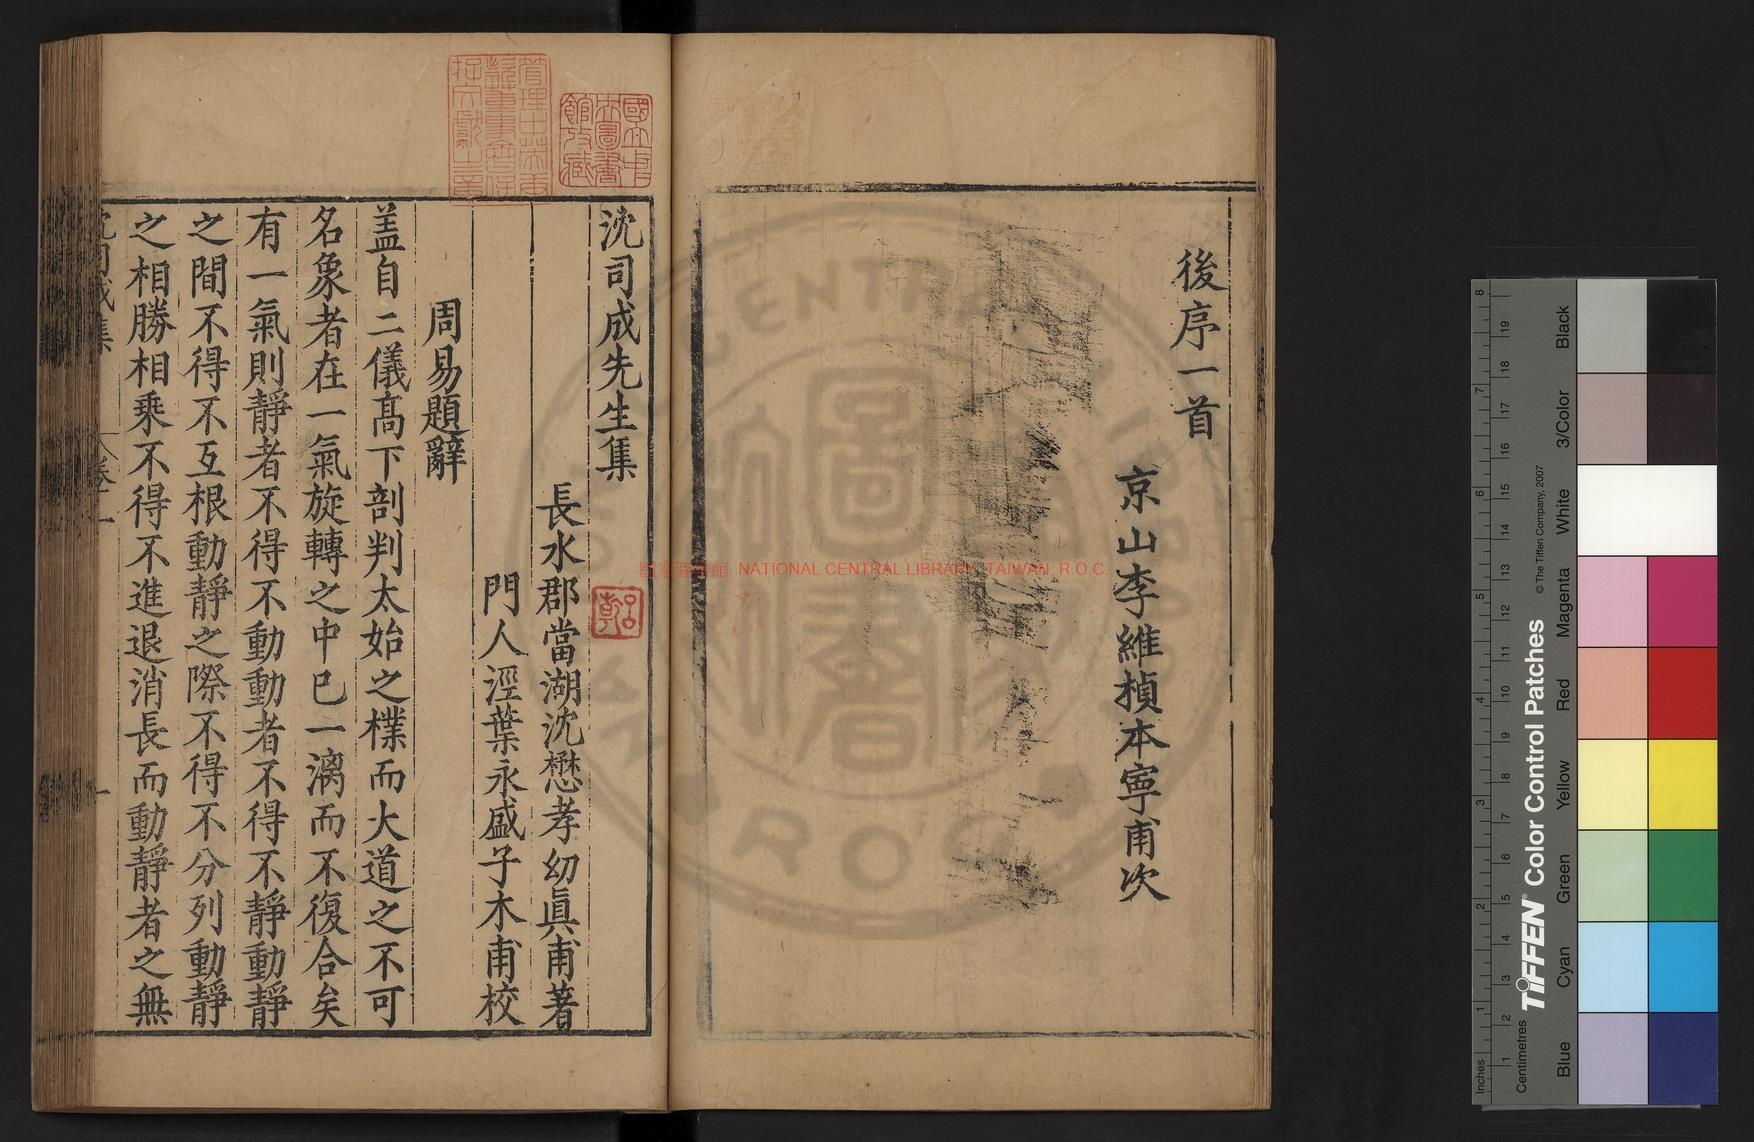 後序一首
京山李維楨本寧甫次
沈司成先生集
長水郡當湖沈懋孝幼眞甫著
門人涇葉永盛子木甫校
周易題辭
盖自二儀髙下剖判太始之樸而大道之不可
名象者在一氣旋轉之中已一漓而不復合矣
有一氣則靜者不得不動動者不得不靜動靜
之間不得不互根動靜之際不得不分列動靜
之相勝相乘不得不進退消長而動靜者之無
國立中央圖書館收藏
管理中英庚款董事會保存文獻之章
國家圖書館 NATIONAL CENTRAL LIBRARY, TAIWAN, R.O.C
TIFFEN® Color Control Patches
© The Tiffen Company, 2007
Centimetres
Inches
Blue
Cyan
Green
Yellow
Red
Magenta
White
3/Color
Black